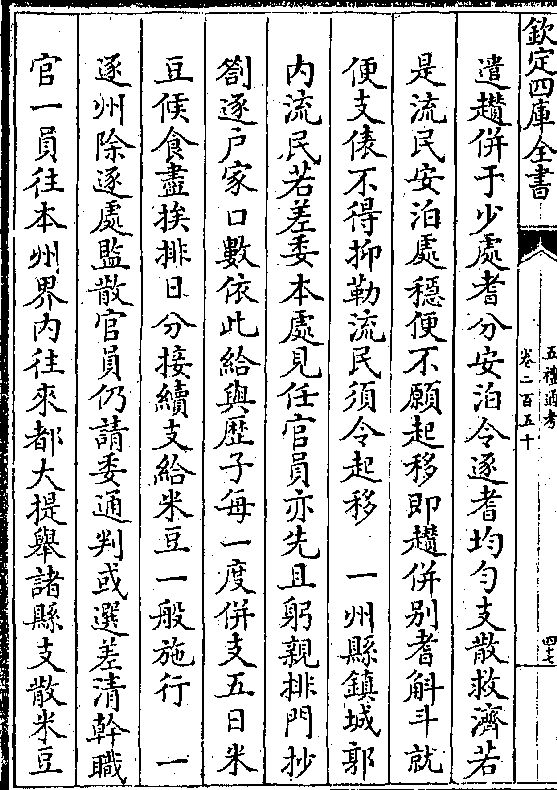 欽定四庫全書
五禮通考
卷二百五十
四十七
遣趲併于少處耆分安泊令逐耆均勻支散救濟若
是流民安泊處穩便不願起移即趲併別耆斛斗就
便支俵不得抑勒流民須令起移　一州縣鎮城郭
内流民若差委本處見任官員亦先且躬親排門抄
劄逐户家口數依此給與歴子每一度併支五日米
豆候食盡挨排日分接續支給米豆一般施行　一
逐州除逐處監散官員仍請委通判或選差清幹職
官一員往本州界内往來都大提舉諸縣支散米豆